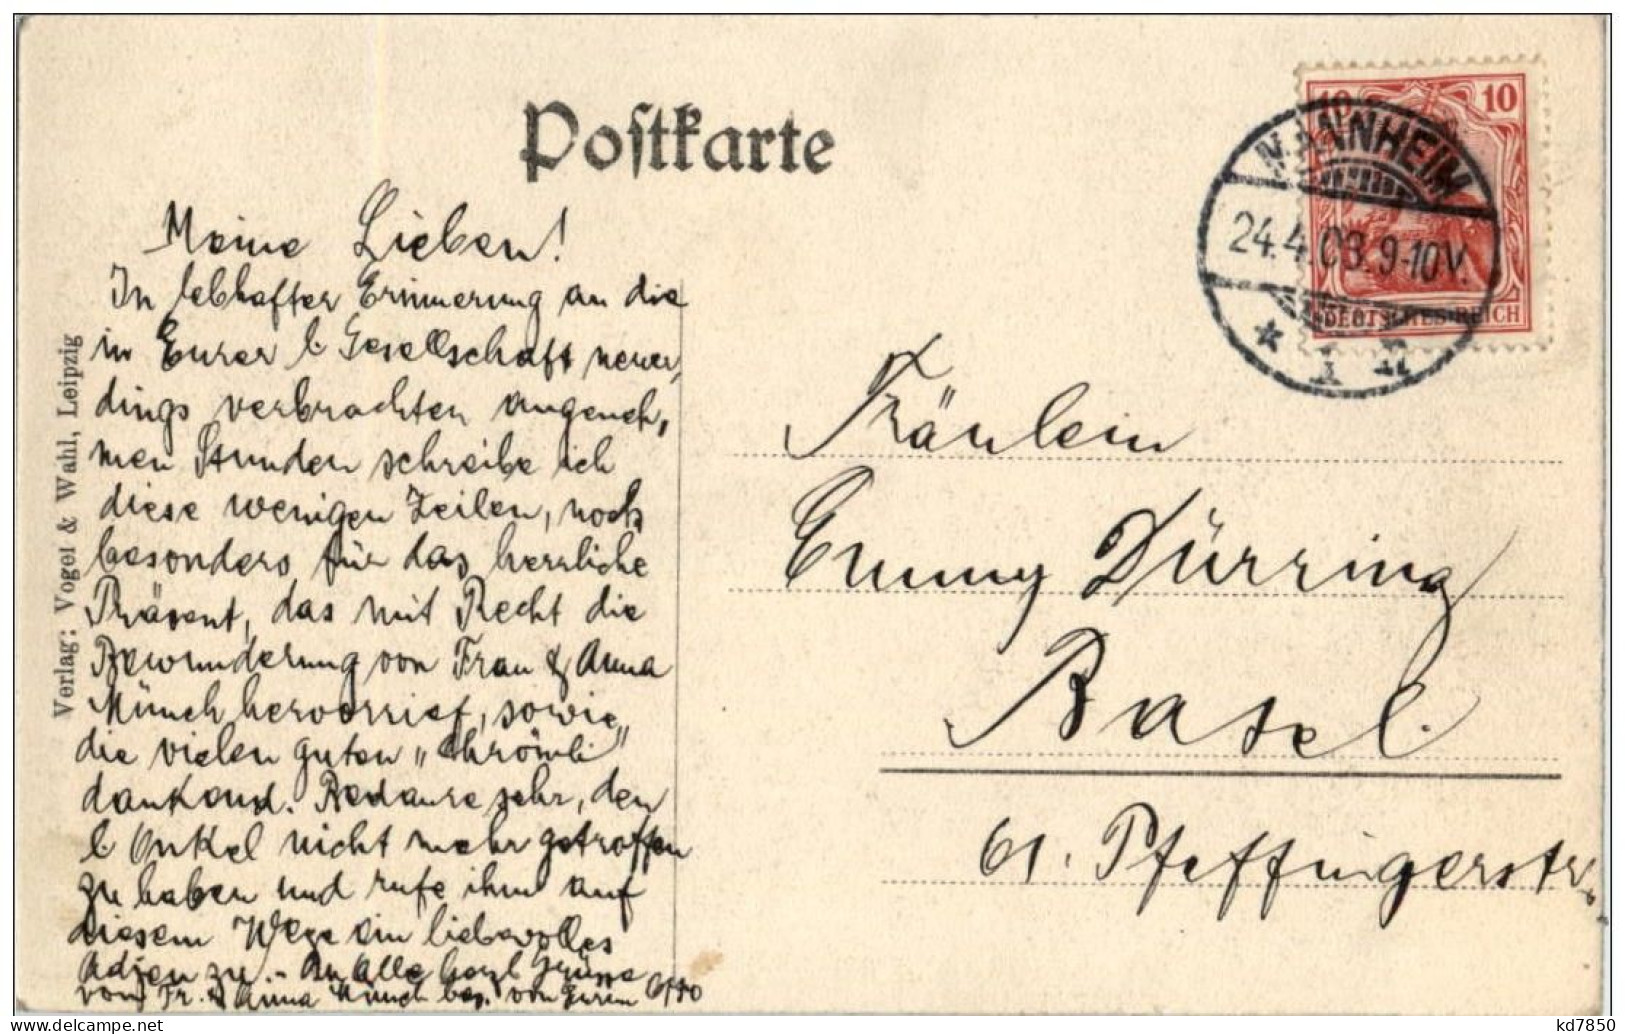 Postkarte
10
10
MANNHEIM
24.4.08.9-10V.
DEUTSCHES REICH
* 1 n
Verlag: Vogel & Wahl, Leipzig
Meine Lieben!
In lebhafter Erinnerung an die
in Eurer l. Gesellschaft neuer„
dings verbrachten angeneh„
men Stunden schreibe ich
diese wenigen Zeilen, noch
besonders für das herrliche
Präsent, das mit Recht die
Bewunderung von Frau & Anna
Münch hervorrief, sowie
die vielen guten „Chrömli"
dankend. Bedaure sehr, den
l. Onkel nicht mehr getroffen
zu haben und rufe ihm auf
diesem Wege ein liebevolles
Adieu zu. - An Alle herzl Grüsse
von Fr. & Anna Münch bes. von Eurem Otto
Fräulein
Emmy Dürring
Basel.
61. Pfeffingerstr.
www.delcampe.net
kd7850